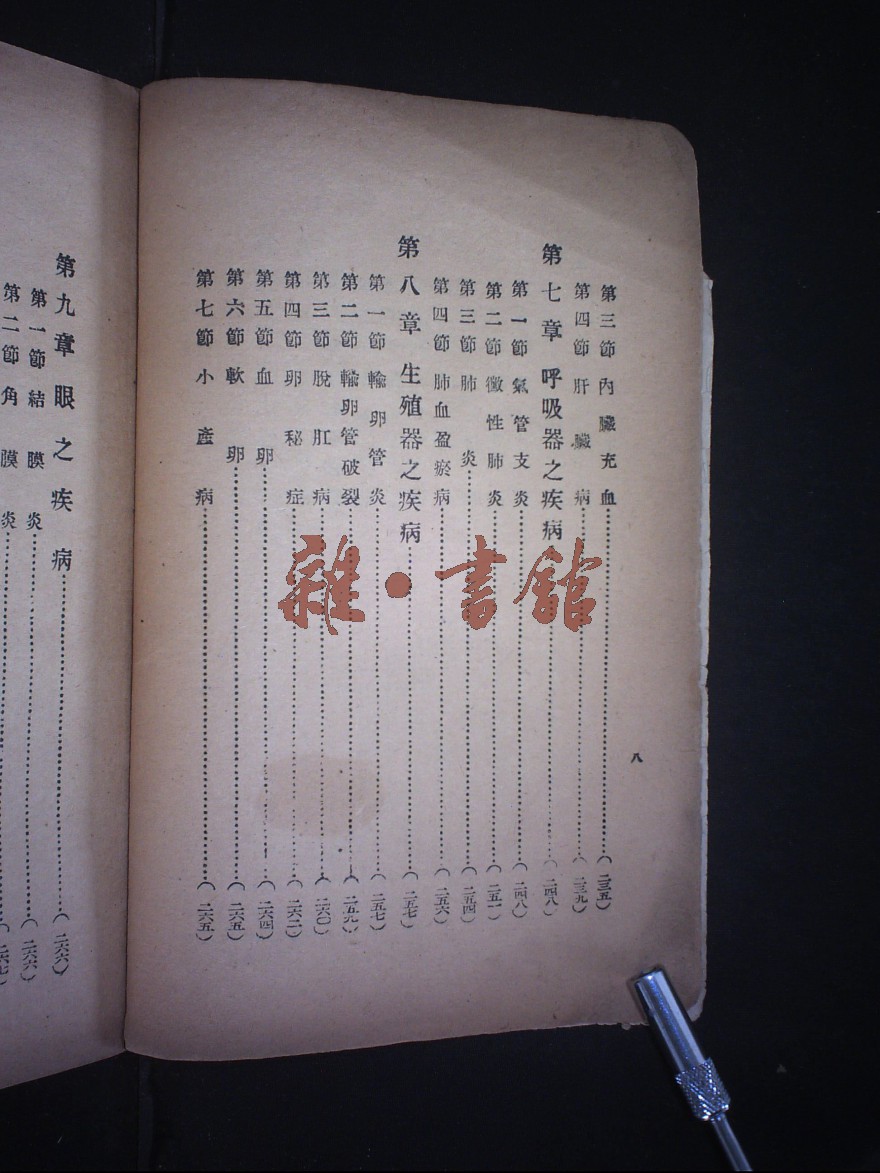 第三節內臟充血………（二三五）
第四節肝臟病………（二三九）
第七章 呼吸器之疾病………（二四八）
第一節氣管支炎………（二四八）
第二節黴性肺炎………（二五一）
第三節肺炎………（二五四）
第四節肺血盈瘀病………（二五六）
第八章 生殖器之疾病………（二五七）
第一節輸卵管炎………（二五七）
第二節輸卵管破裂………（二五九）
第三節脫肛病………（二六〇）
第四節卵秘症………（二六二）
第五節血卵………（二六四）
第六節軟卵………（二六五）
第七節小產病………（二六五）
八
第九章 眼之疾病………（二六六）
第一節結膜炎………（二六六）
第二節角膜炎………（二六七）
雜·書館